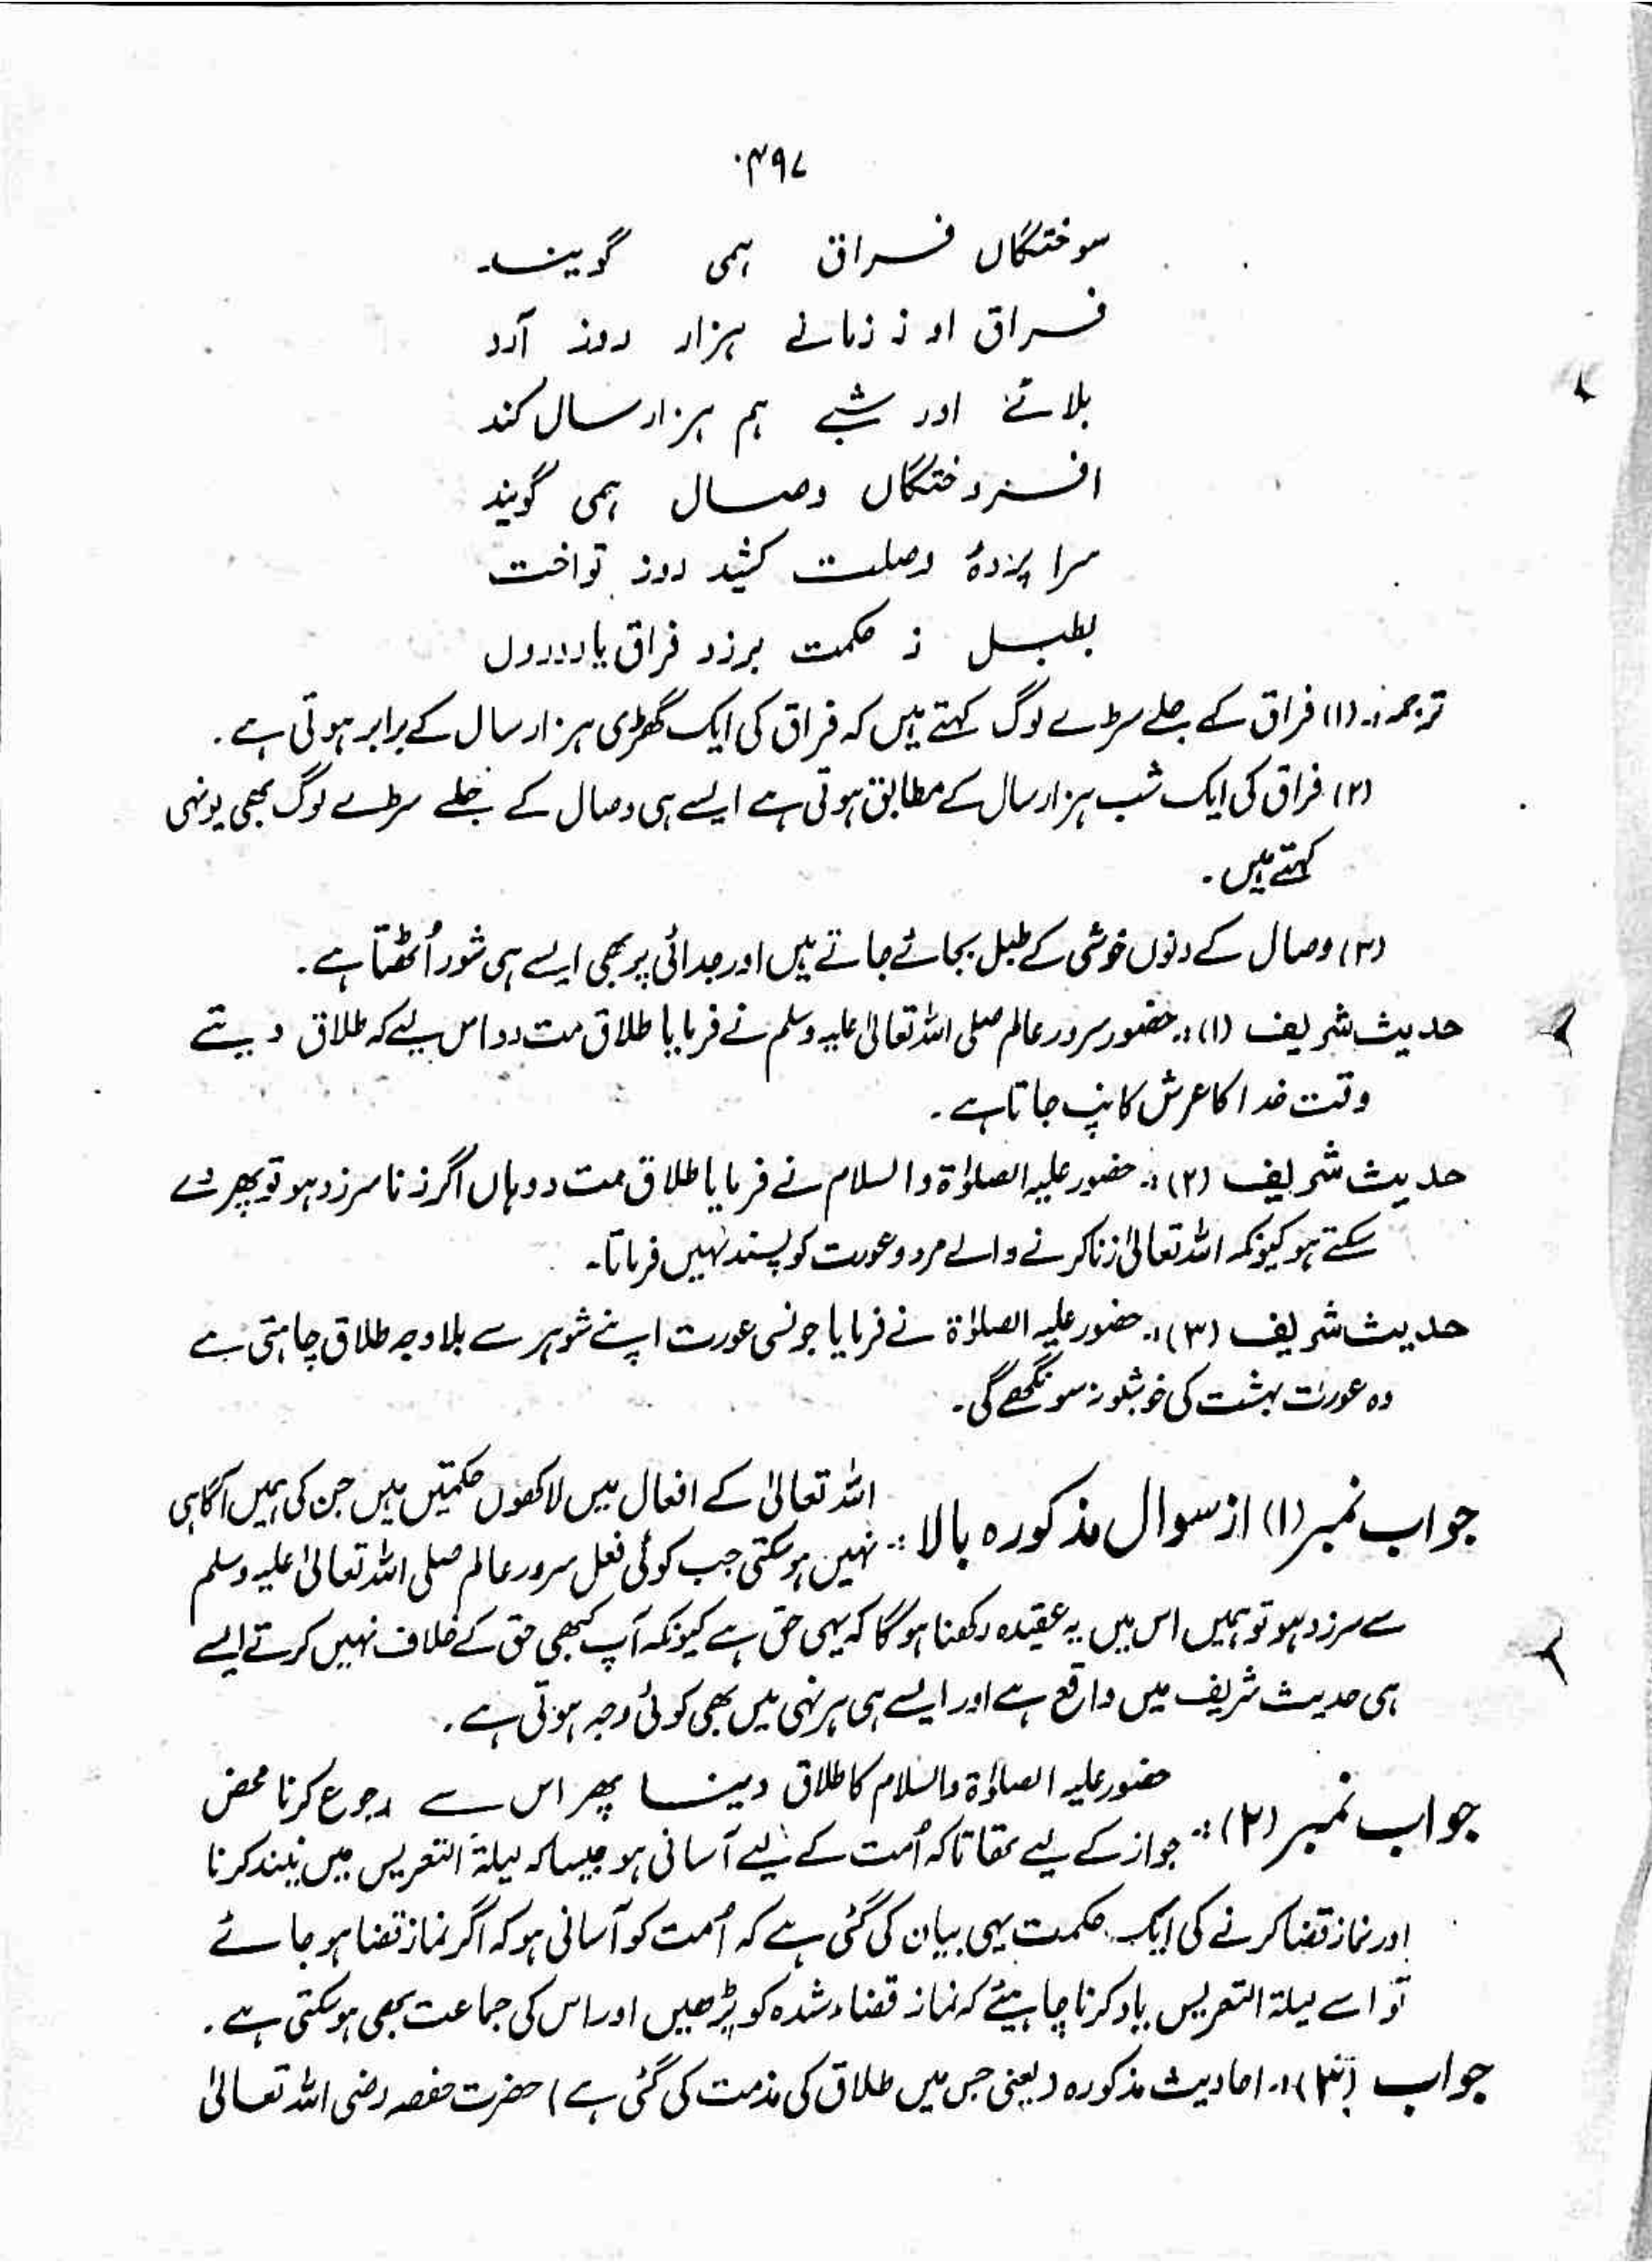 ۴۹۷
سوختگاں فراق ہمی گویند
فراق او ز زمانے ہزار روز آرد
بلائے اور شبے ہم ہزار سال کند
افروختگاں وصال ہمی گویند
سرا پردۂ وصلت کشید روز تواخت
بطبل ز حکمت برزد فراق یار دول
ترجمہ:۔ (۱) فراق کے جلے سڑے لوگ کہتے ہیں کہ فراق کی ایک گھڑی ہزار سال کے برابر ہوتی ہے۔
(۲) فراق کی ایک شب ہزار سال کے مطابق ہوتی ہے ایسے ہی وصال کے جلے سڑے لوگ بھی یونہی
کہتے ہیں۔
(۳) وصال کے دنوں خوشی کے طبل بجائے جاتے ہیں اور جدائی پر بھی ایسے ہی شور اُٹھتا ہے۔
حدیث شریف (۱):۔ حضور سرور عالم صلی اللہ تعالیٰ علیہ وسلم نے فرمایا طلاق مت دو اس لیے کہ طلاق دیتے
وقت خدا کا عرش کانپ جاتا ہے۔
حدیث شریف (۲):۔ حضور علیہ الصلوٰۃ والسلام نے فرمایا طلاق مت دو ہاں اگر زنا سرزد ہو تو پھر دے
سکتے ہو کیونکہ اللہ تعالیٰ زنا کرنے والے مرد و عورت کو پسند نہیں فرماتا۔
حدیث شریف (۳):۔ حضور علیہ الصلوٰۃ نے فرمایا جونسی عورت اپنے شوہر سے بلا وجہ طلاق چاہتی ہے
وہ عورت بہشت کی خوشبو نہ سونگھے گی۔
جواب نمبر (۱) از سوال مذکورہ بالا :۔ اللہ تعالیٰ کے افعال میں لاکھوں حکمتیں ہیں جن کی ہمیں آگاہی
نہیں ہو سکتی جب کوئی فعل سرور عالم صلی اللہ تعالیٰ علیہ وسلم
سے سرزد ہو تو ہمیں اس میں یہ عقیدہ رکھنا ہو گا کہ یہی حق ہے کیونکہ آپ کبھی حق کے خلاف نہیں کرتے ایسے
ہی حدیث شریف میں واقع ہے اور ایسے ہی ہر نہی میں بھی کوئی وجہ ہوتی ہے۔
جواب نمبر (۲) :۔ حضور علیہ الصلوٰۃ والسلام کا طلاق دینا پھر اس سے رجوع کرنا محض
جواز کے لیے تھا تاکہ اُمت کے لیے آسانی ہو جیسا کہ لیلۃ التعریس میں نیند کرنا
اور نماز قضا کرنے کی ایک حکمت یہی بیان کی گئی ہے کہ اُمت کو آسانی ہو کہ اگر نماز قضا ہو جائے
تو اسے لیلۃ التعریس یاد کرنا چاہیئے کہ نماز قضاء شدہ کو پڑھیں اور اس کی جماعت بھی ہو سکتی ہے۔
جواب (۳):۔ احادیث مذکورہ (یعنی جس میں طلاق کی مذمت کی گئی ہے) حضرت حفصہ رضی اللہ تعالیٰ